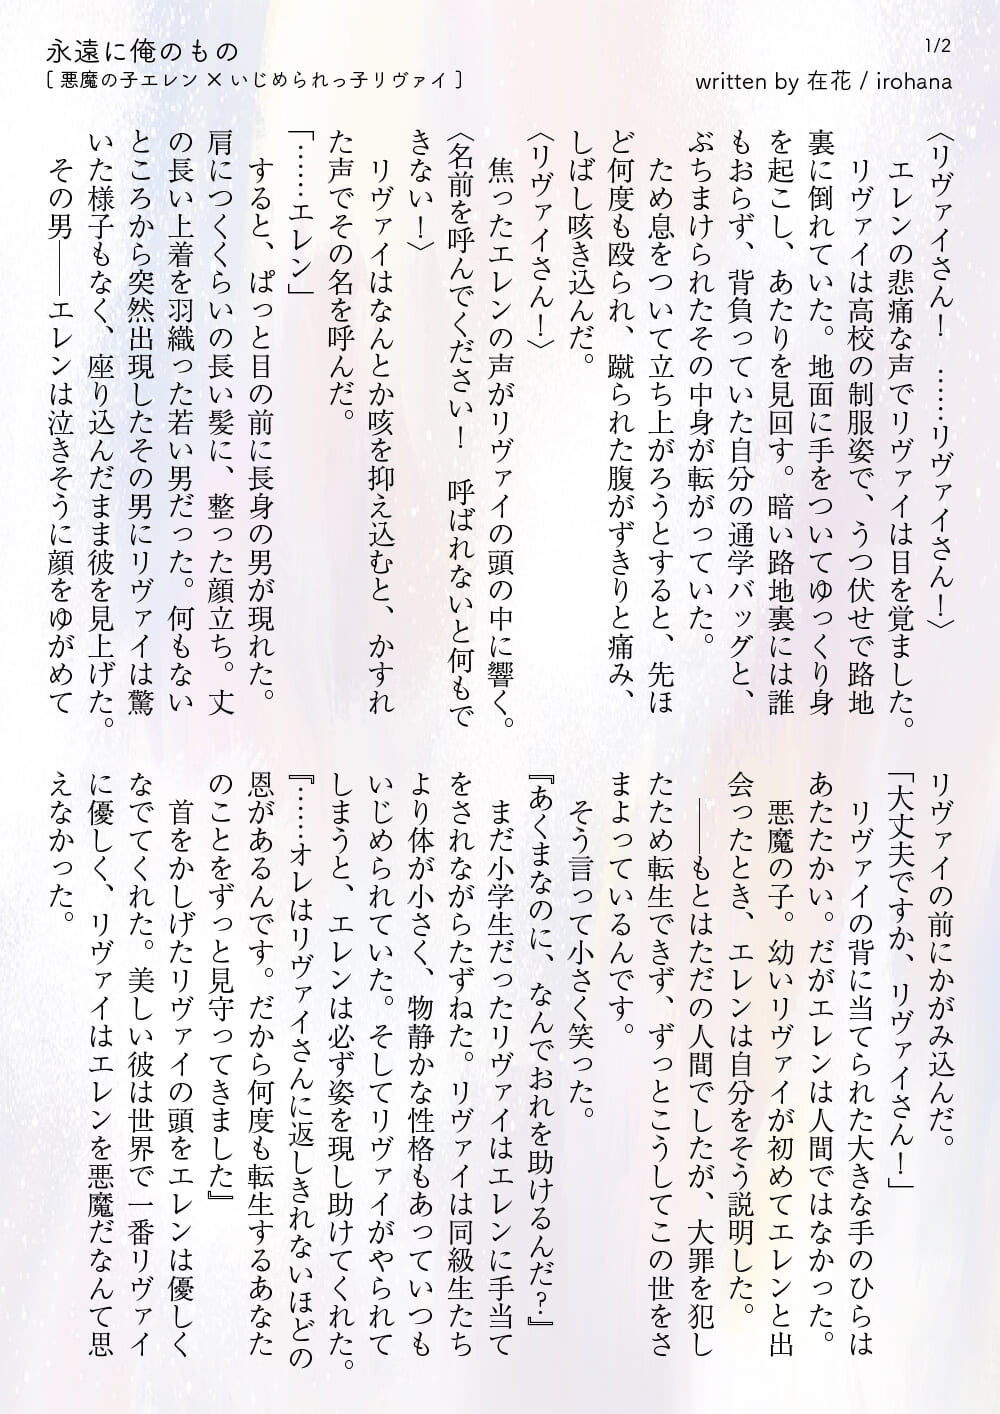 永遠に俺のもの
[ 悪魔の子エレン × いじめられっ子リヴァイ ]
1/2
written by 在花 / irohana
〈リヴァイさん！　……リヴァイさん！〉
　エレンの悲痛な声でリヴァイは目を覚ました。
　リヴァイは高校の制服姿で、うつ伏せで路地
裏に倒れていた。地面に手をついてゆっくり身
を起こし、あたりを見回す。暗い路地裏には誰
もおらず、背負っていた自分の通学バッグと、
ぶちまけられたその中身が転がっていた。
　ため息をついて立ち上がろうとすると、先ほ
ど何度も殴られ、蹴られた腹がずきりと痛み、
しばし咳き込んだ。
〈リヴァイさん！〉
　焦ったエレンの声がリヴァイの頭の中に響く。
〈名前を呼んでください！　呼ばれないと何もで
きない！〉
　リヴァイはなんとか咳を抑え込むと、かすれ
た声でその名を呼んだ。
「……エレン」
　すると、ぱっと目の前に長身の男が現れた。
肩につくくらいの長い髪に、整った顔立ち。丈
の長い上着を羽織った若い男だった。何もない
ところから突然出現したその男にリヴァイは驚
いた様子もなく、座り込んだまま彼を見上げた。
　その男――エレンは泣きそうに顔をゆがめて
リヴァイの前にかがみ込んだ。
「大丈夫ですか、リヴァイさん！」
　リヴァイの背に当てられた大きな手のひらは
あたたかい。だがエレンは人間ではなかった。
　悪魔の子。幼いリヴァイが初めてエレンと出
会ったとき、エレンは自分をそう説明した。
　――もとはただの人間でしたが、大罪を犯し
たため転生できず、ずっとこうしてこの世をさ
まよっているんです。
　そう言って小さく笑った。
『あくまなのに、なんでおれを助けるんだ？』
　まだ小学生だったリヴァイはエレンに手当て
をされながらたずねた。リヴァイは同級生たち
より体が小さく、物静かな性格もあっていつも
いじめられていた。そしてリヴァイがやられて
しまうと、エレンは必ず姿を現し助けてくれた。
『……オレはリヴァイさんに返しきれないほどの
恩があるんです。だから何度も転生するあなた
のことをずっと見守ってきました』
　首をかしげたリヴァイの頭をエレンは優しく
なでてくれた。美しい彼は世界で一番リヴァイ
に優しく、リヴァイはエレンを悪魔だなんて思
えなかった。